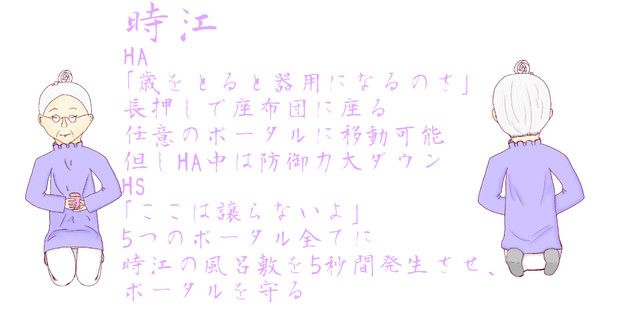 時江
HA
「歳をとると器用になるのさ」
長押しで座布団に座る
任意のポータルに移動可能
但しHA中は防御力大ダウン
HS
「ここは譲らないよ」
5つのポータル全てに
時江の風呂敷を5秒間発生させ、
ポータルを守る